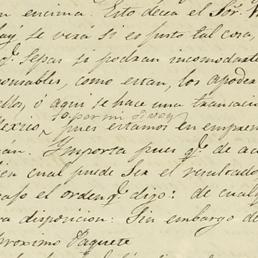 en encima. Esto decea el Sor.
hay se verá si es justo tal cosa,
qe. sepas si podran incomodarte
onsables, como estan, los apoder
ellos, o aqui se hace una transacio
Mexico yo por mi pues estamos en empren
an. Ymporta pues qe. de ac
ien cual puede ser el resultado
caso el orden qe. digo: de cualq
ra disposicion. Sin embargo de
proximo Paquete